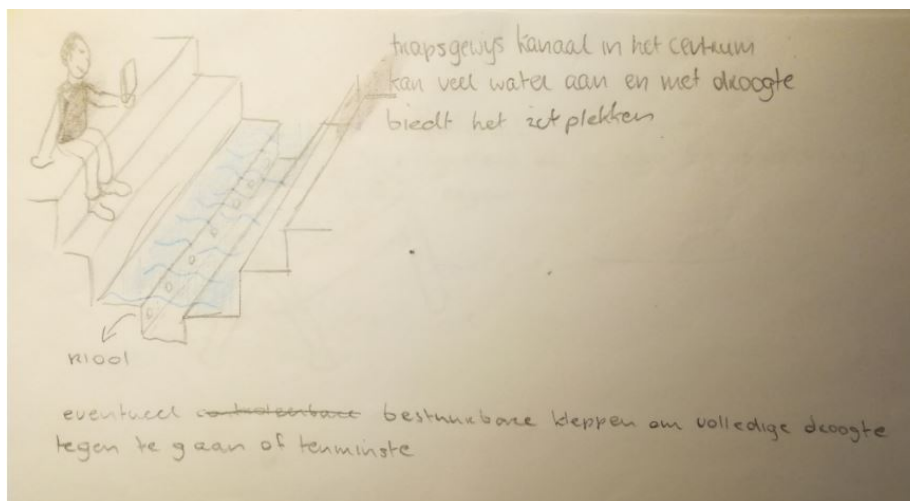 trapsgewijs kanaal in het centrum
kan veel water aan en met droogte
biedt het zitplekken
riool
eventueel controleerbare bestuurbare kleppen om volledige droogte
tegen te gaan of tenminste